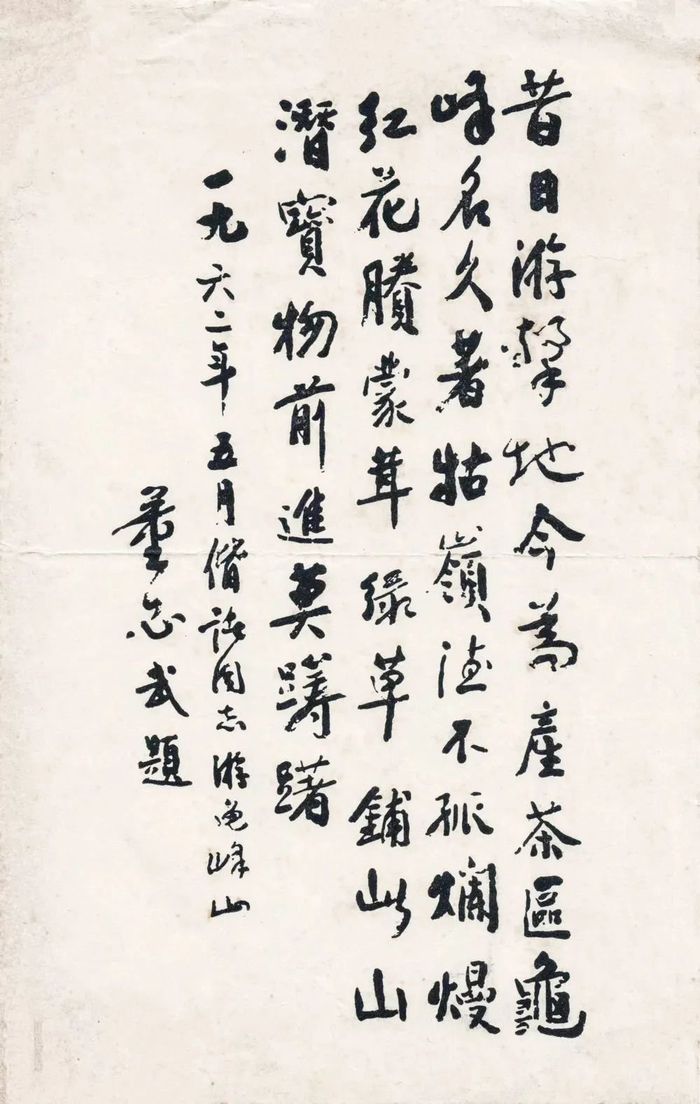 昔日游擊地今為產茶區龜
峰名久著牯嶺德不孤爛熳
紅花賸蒙茸綠草鋪此山
潛寶物前進莫躊躇
一九六二年五月偕諸同志游龟峰山
董必武題